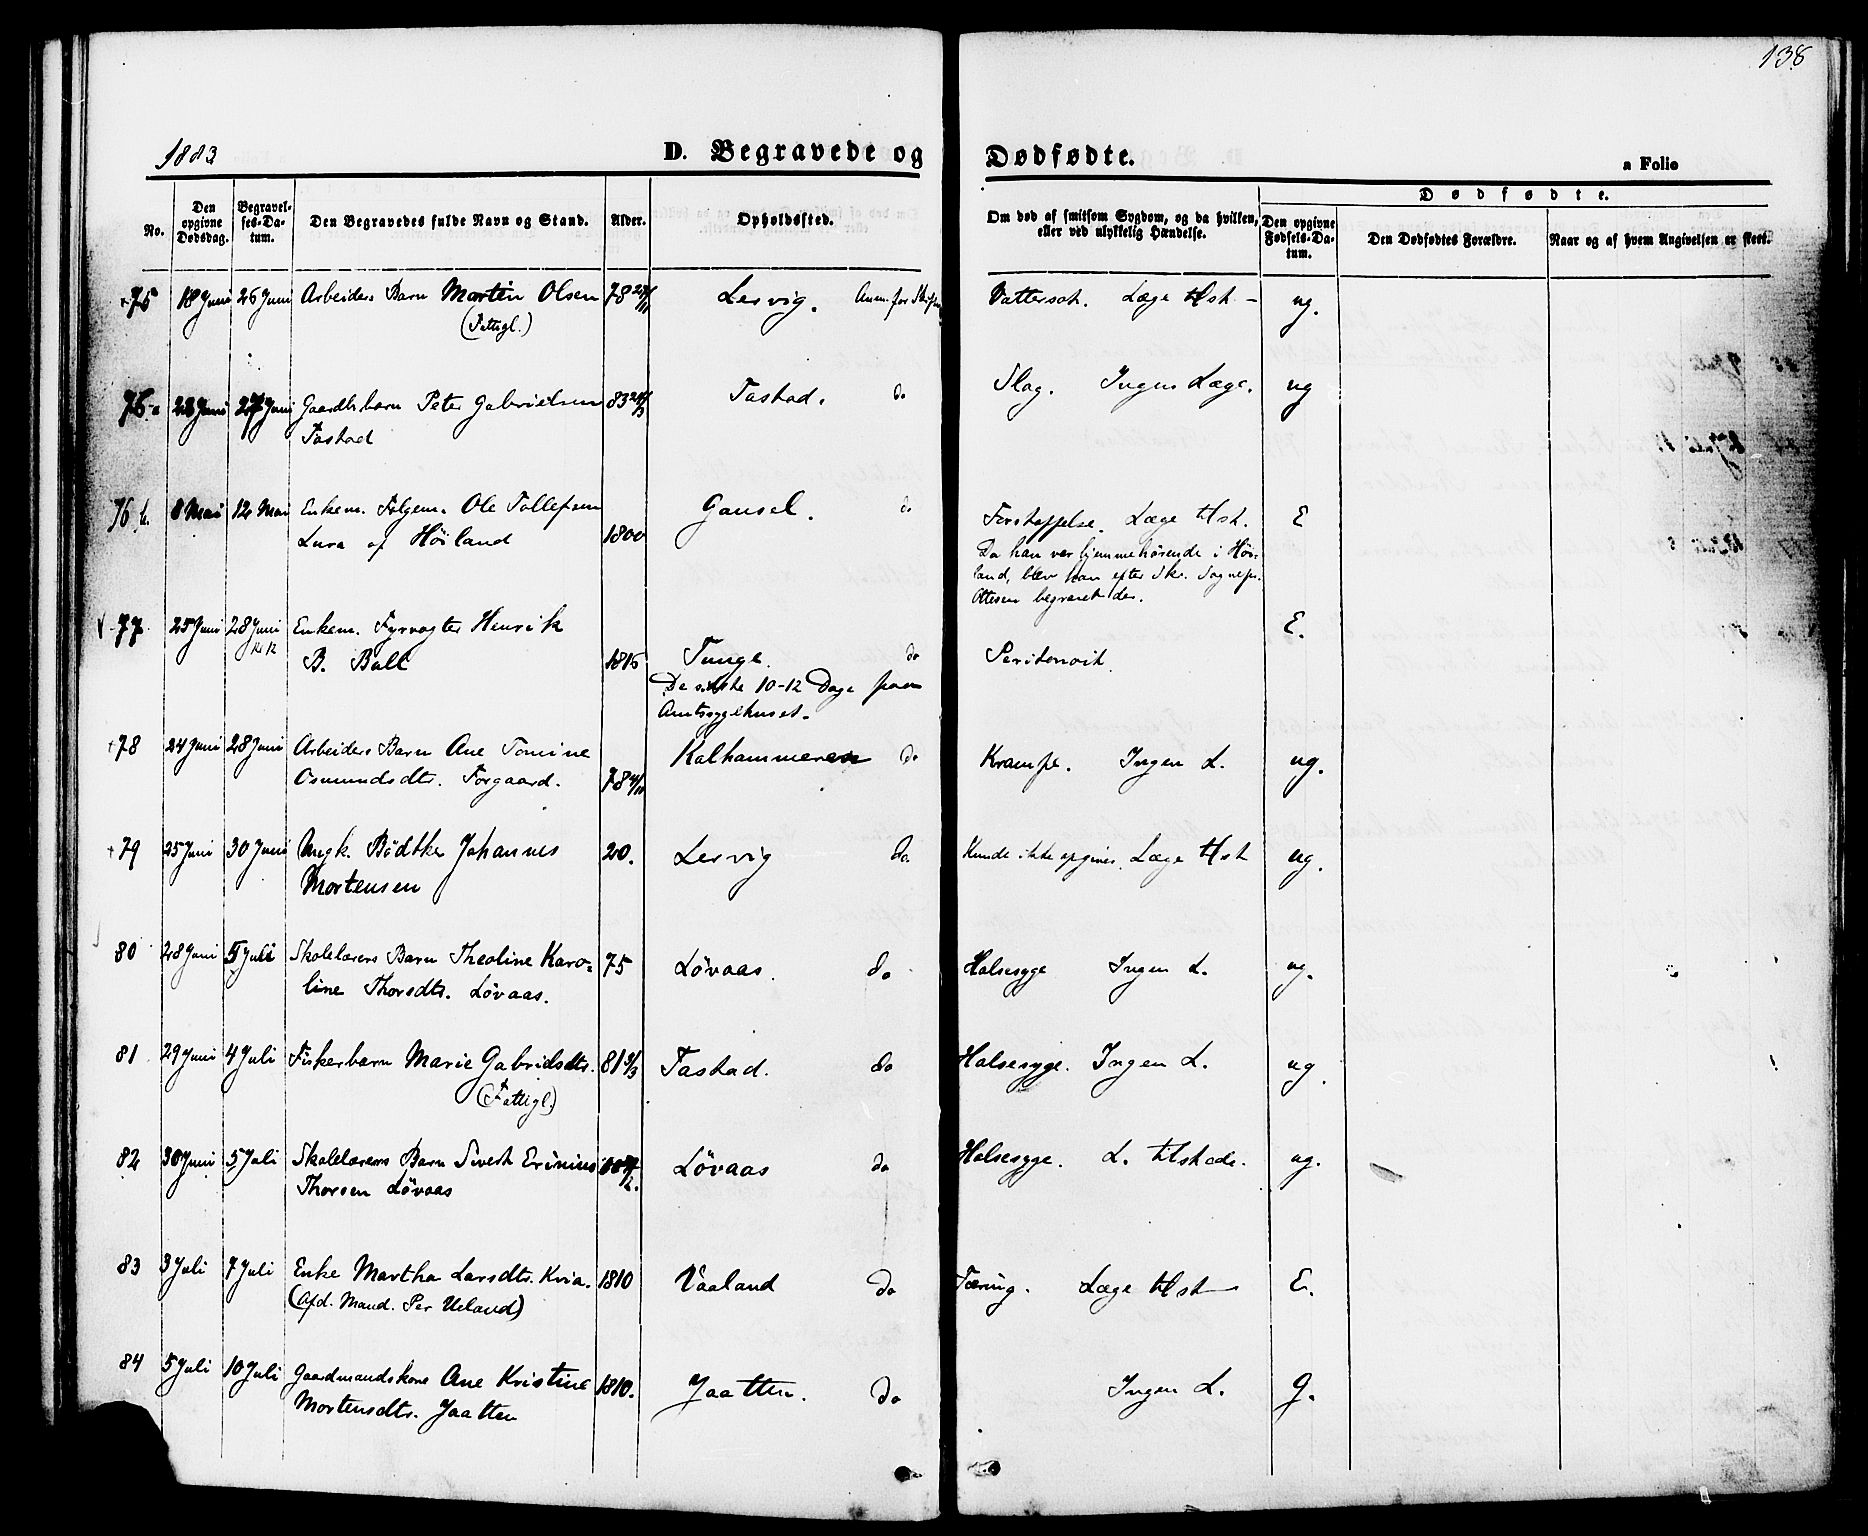 138
1883
D. Begravede og Dødfødte.
a Folio
No.
Den opgivne Dødsdag.
Begravelses-Datum.
Den Begravedes fulde Navn og Stand.
Alder.
Opholdssted.
Om død af smitsom Sygdom, og da hvilken, eller ved ulykkelig Hændelse.
Dødfødte.
Den opgivne Fødsels-Datum.
Den Dødfødtes Forældre.
Naar og af hvem Angivelsen er skeet.
75 18 Juni 26 Juni Arbeiders Barn Martin Olsen 78 Lervig. Vattersot. Læge tilst. ug.
(Fattigl.)
76 a 27 Juni Gaardbr. barn Peter Gabrielsen 83 Tastad. do Slag. Ingen Læge. ug
Tastad
76 b. 8 Mai 12 Mai Enkem. Følgem. Ole Tollefsen 1800 Gausel. do Forstoppelse. Læge tilst. E
Lura af Höiland
Da han var hjemmehörende i Höi-
land, blev han efter Skr. Sognepr.
Ottesen begravet der.
77 25 Juni 28 Juni Enkem. Fyrvogter Henrik E.
B. Bull 1816 Tunge. do Peritonoit.
De sidste 10-12 Dage paa
Amtssygehuset.
78 24 Juni 28 Juni Arbeiders Barn Ane Tomine Kalhammeren do Krampe. Ingen L. ug.
Osmundsdtr. Forgaard. 78
79 25 Juni 30 Juni Ungk. Bödtker Johannes 20. Lervig do. Kunde ikke opgives. Læge tilst ug.
Mortensen
80 28 Juni 5 Juli Skolelærers Barn Theoline Karo- 75 Lövaas. do Halsesyge Ingen L. ug.
line Thorsdtr. Lövaas.
81 29 Juni 4 Juli Fiskerbarn Marie Gabrielsdtr. 81 Tastad. do Halsesyge. Ingen L. ug.
(Fattigl.)
82 30 Juni 5 Juli Skolelærers Barn Sivert Erinius Lövaas do Halsesyge. L. tilstede. ug.
Thorsen Lövaas
83 3 Juli 7 Juli Enke Martha Larsdtr. Kvia. 1810 Vaaland do Tæring. Læge tilst E.
(Afd. Mand. Per Ueland)
84 5 Juli 10 Juli Gaardmandskone Ane Kristine 1810. Jaatten. do Ingen L. g.
Mortensdtr. Jaatten